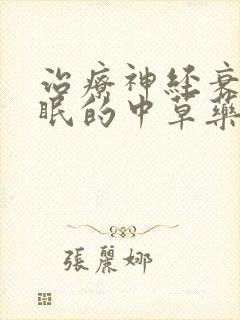 治療神经衰
眠的中草藥
張麗娜